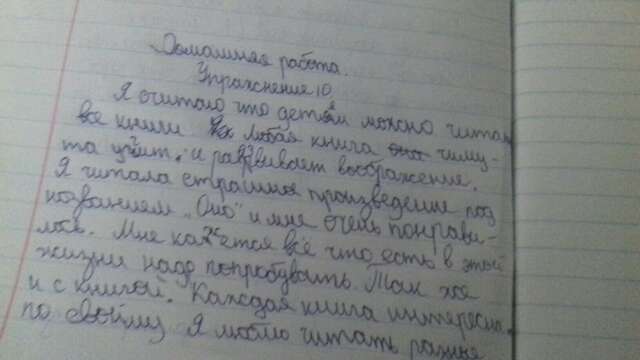 Домашняя работа.
Упражнение 10
Я считаю что детям можно читать
все книги. Любая книга чему-
та учит. и развивает воображение.
Я читала страшное произведение под
названием "Оно" и мне очень понрави-
лось. Мне кажется всё что есть в этой
жизни надо попробувать. Так же
и с книгой. Каждая книга интересна
по своему Я люблю читать разные